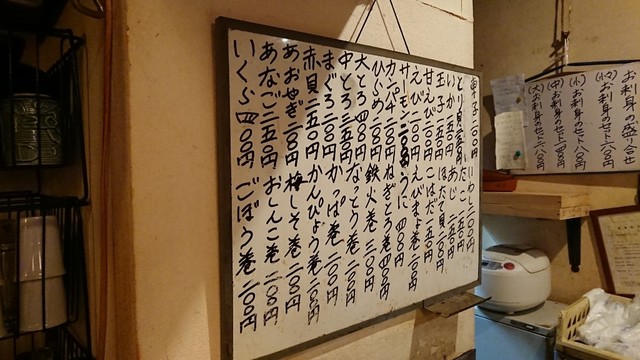 子 二〇〇円 いわし 二〇〇円
とり貝 円 たこ 一五〇円
いか 二五〇円 あじ 二五〇円
玉子 一五〇円 ほたて貝 二〇〇円
甘えび 二〇〇円 こはだ 一五〇円
えび 二〇〇円 えびまよ巻 二〇〇円
サーモン 二〇〇円 うに 四〇〇円
カンパチ 二〇〇円 ねぎとろ巻 四〇〇円
ひらめ 二〇〇円 鉄火巻 三〇〇円
大とろ 四〇〇円 なっとう巻 二〇〇円
中とろ 三五〇円 かっぱ巻 二〇〇円
まぐろ 二〇〇円 かんぴょう巻 二〇〇円
赤貝 二五〇円
あおやぎ 二〇〇円 梅しそ巻 二〇〇円
あなご 二五〇円 おしんこ巻 二〇〇円
いくら 四〇〇円 ごぼう巻 二〇〇円
お刺身の盛り合せ
お刺身のセット 八〇〇円
(小) お刺身のセット 一八〇〇円
(中) お刺身のセット 二〇〇円
(大) お刺身のセット 二八〇〇円